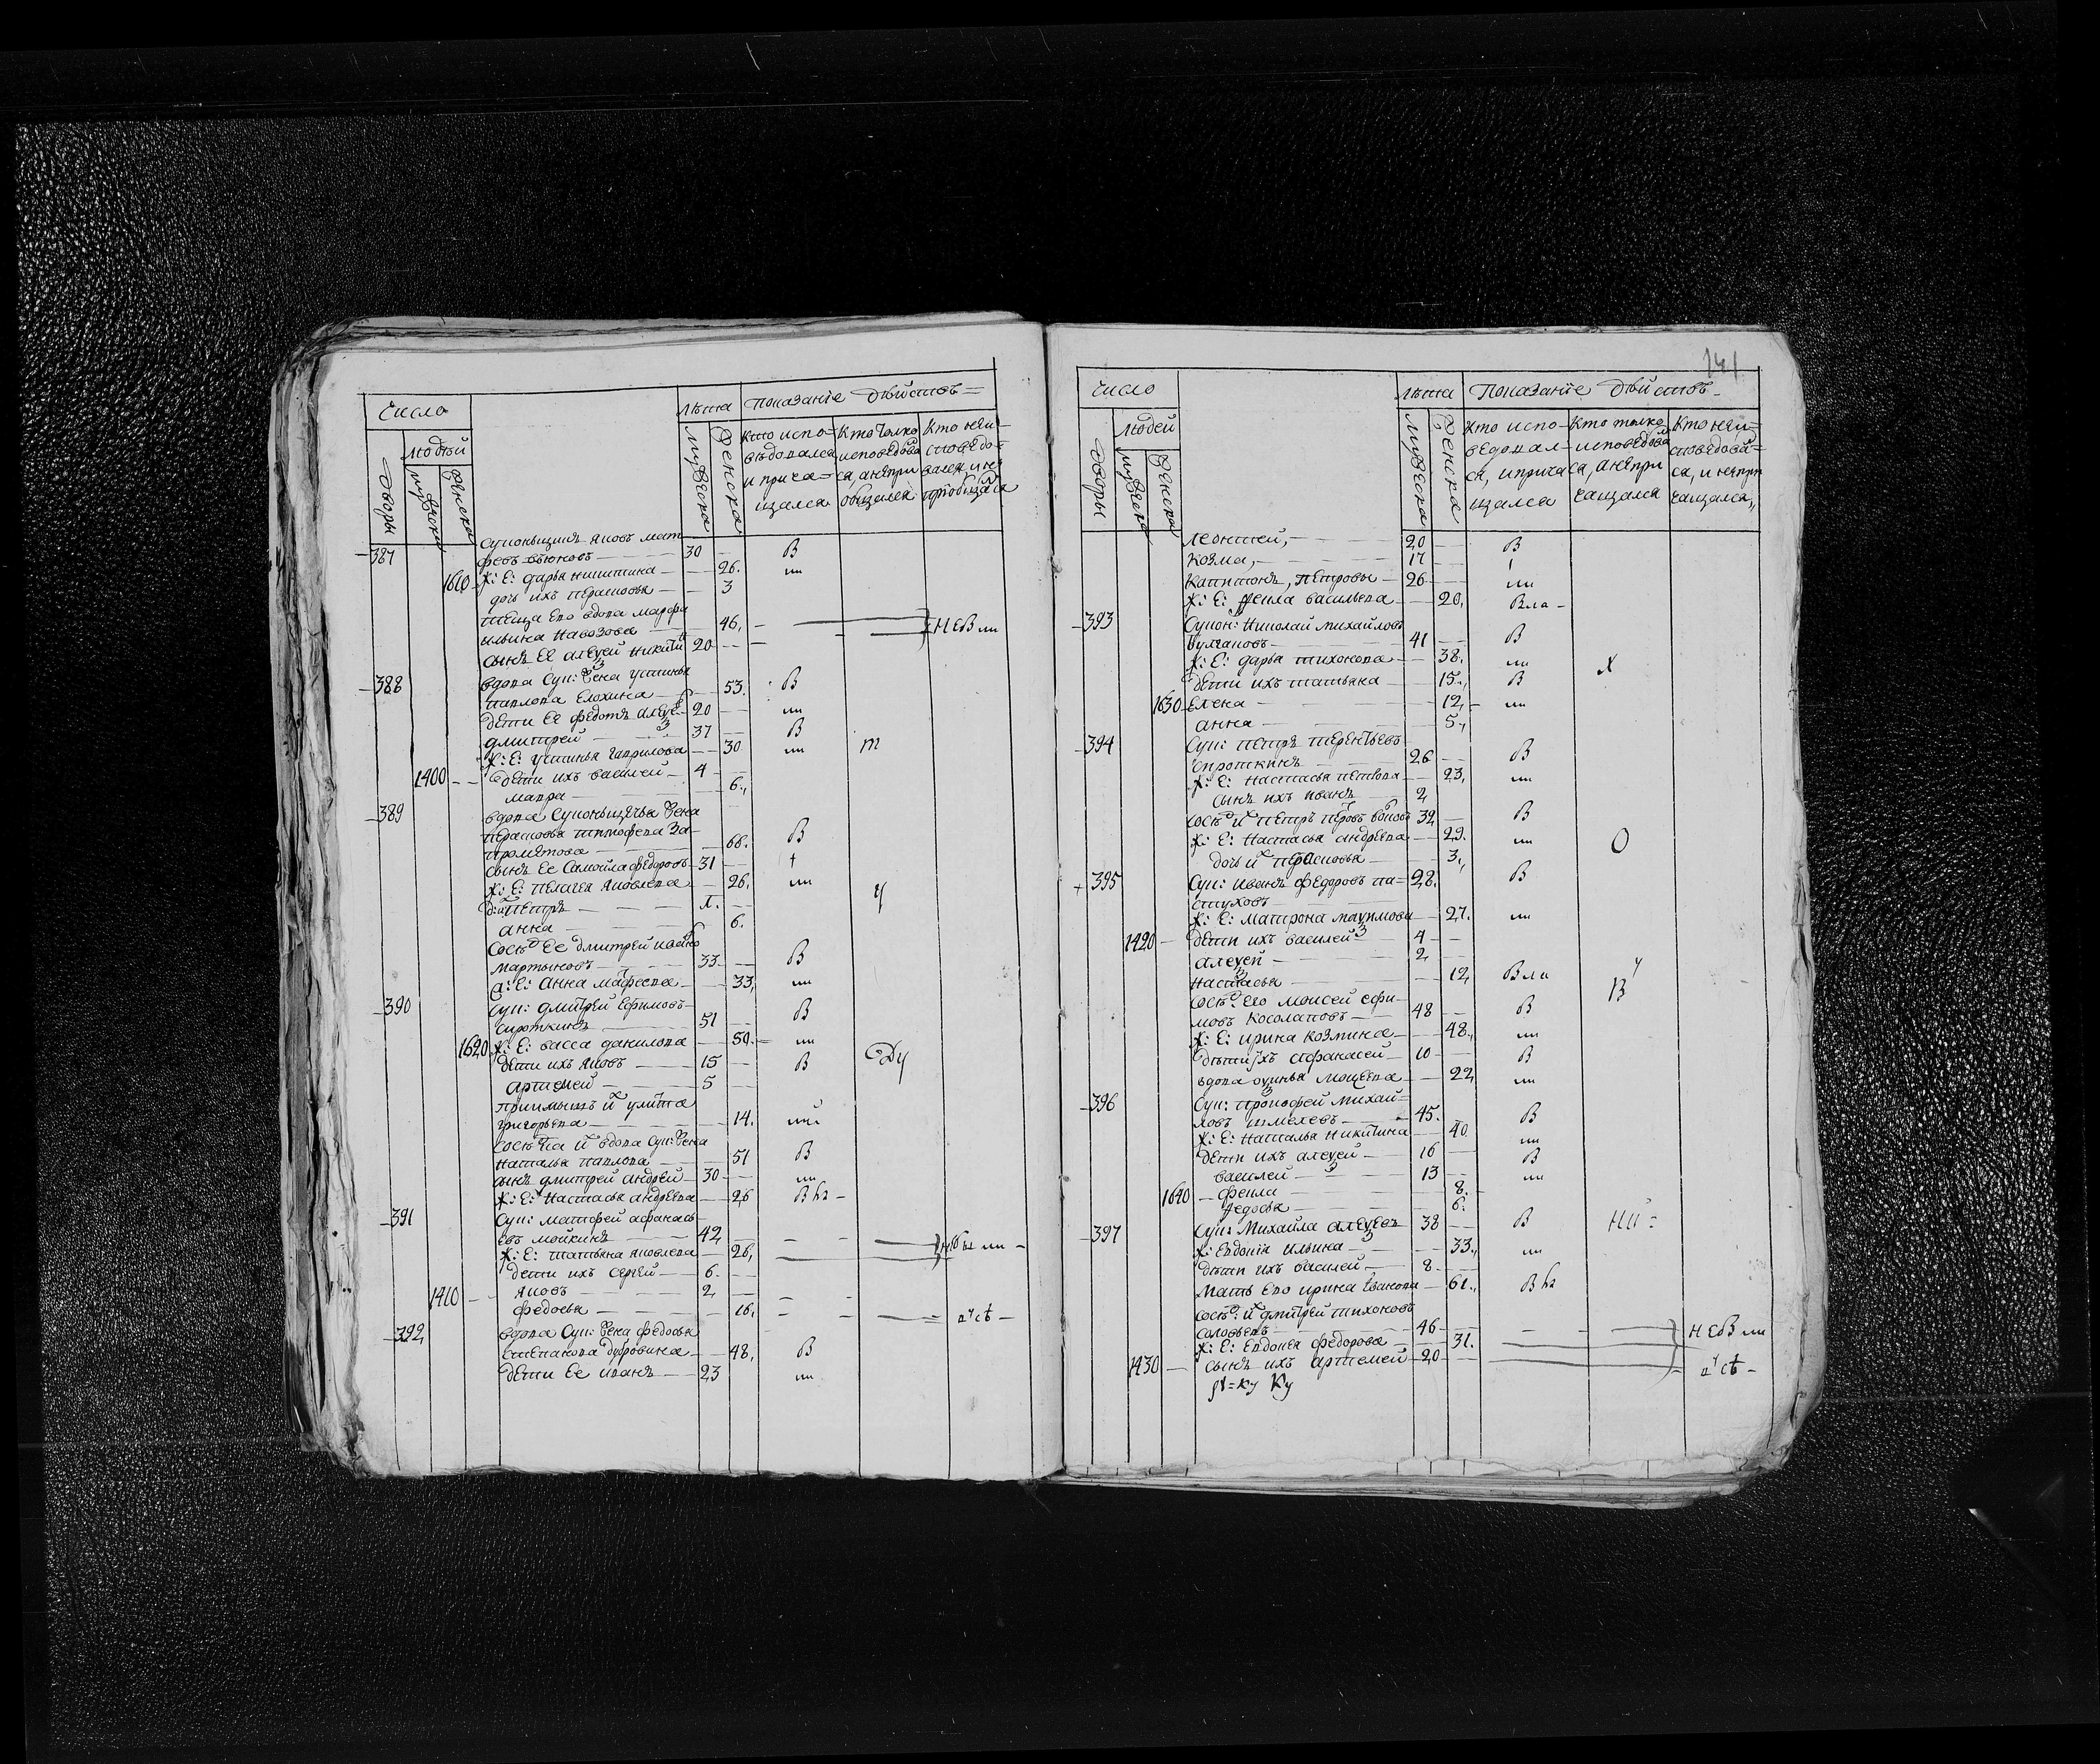 Число
Людей
Дворы
мужеска
женска
Лѣта
мужеска
женска
Показанїе Дѣйствъ=
Кто испо-
вѣдовался
и прича=
щался
Кто только
исповѣдова
са анепри
общался
Кто неи-
споведо=
вался, и не
приобщался
суконьщикъ яковъ мат
387 фѣевъ вьюковъ 30 В
1610 ж: Е: дарья никитина 26.
дочь ихъ Парасковья 3
теща Его вдова марфа
ильина Навозова 46, НЕВ
сынъ Ее алеѯей никити 20
388 вдова Сук: жена устинья
павлова Елохина 53. В
дети Ее федотъ алеѯе 20
дмитрей 37 В
ж: Е: устинья гаврилова 30 т
1400 дети ихъ василей 4
мавра 6.,
389 вдова Суконьщичья жена
Парасковья тимофева За-
66. В
сынъ Ее Самойла федоровъ 31 +
ж: Е: пелагея яковлева 26. ч
петръ
анна 6.
Сосѣд Ее дмитрей ивано
мартыновъ 33 В
ж: Е: анна матфеева 33,
390 Сук: дмитрей Ефимовъ
сироткинъ 51 В
1620 ж: Е: васса данилова 50.
дети ихъ яковъ 15 В Ду
артемей 5
приимышъ их улита
григорьева 14.
сосѣтка их вдова сук: жена
наталья павлова 51 В
сынъ дмитрей андрей 30
ж: Е: Настасья андреева 26 В
391 Сук: матфей афанась
евъ мойкинъ 42
ж: Е: татьяна яковлева 26,
дети ихъ сергей 6.
1410 яковъ 2,
федосья 16.
392 вдова Сук: жена федосья
степанова дубровина 48, В
дети Ее иванъ 23
141
Число
Людей
Дворы
мужеска
женска
Лѣта
мужеска
женска
Показанїе Дѣйствъ
Кто испо-
ведовал-
са, иприча
щался
Кто только
исповѣдова
са, анепри
чащался
Кто неи=
споведова=
са, и непри
чащался,,
леонтей, 20 В
козма, 17
капитонъ, петровы 26
ж: Е: фекла васильева 20,
393 Сукон: николай михайловъ
булгановъ 41 В
ж: Е: дарья тихонова 38. х
дети ихъ татьяна 15., В
1630 Елена 12,
анна 5.,
394 Сук: петръ терентьевъ
сироткинъ 26 В
ж: Е: настасья петрова 23,
сынъ ихъ иванъ 2,
сосѣд их петръ 32 В
ж: Е: настасья андреева 29. О
дочь их Парасковья 3,
395 Сук: иванъ федоровъ па= 28. В
стуховъ
ж: Е: матрона маѯимова 27.
1420 дети ихъ василей 4
алеѯей 2,
настасья 12,
сосѣд его моисей ефи-
мовъ косолаповъ 48 В
ж: Е: ирина козмина 48.,
дѣти ихъ афанасей 10 В
вдова оѯинья моисеева 22,
396 Сук: прокофей михай=
ловъ шмелевъ 45. В
ж: Е: наталья никитина 40
дети ихъ алеѯей 16 В
василей 13
1640 фекла 8.
федосья 6.
397 Сук: Михайла алеѯеевъ 38 В
ж: Евдокия ильина 33.,
дѣти ихъ василей 8
мать Его ирина иванова 61., В
сосѣд: их дмитрей тихоновъ
соловьевъ 46 НЕВ
ж: Е: Евдокея федорова 31.
1430 сынъ ихъ артемей 20